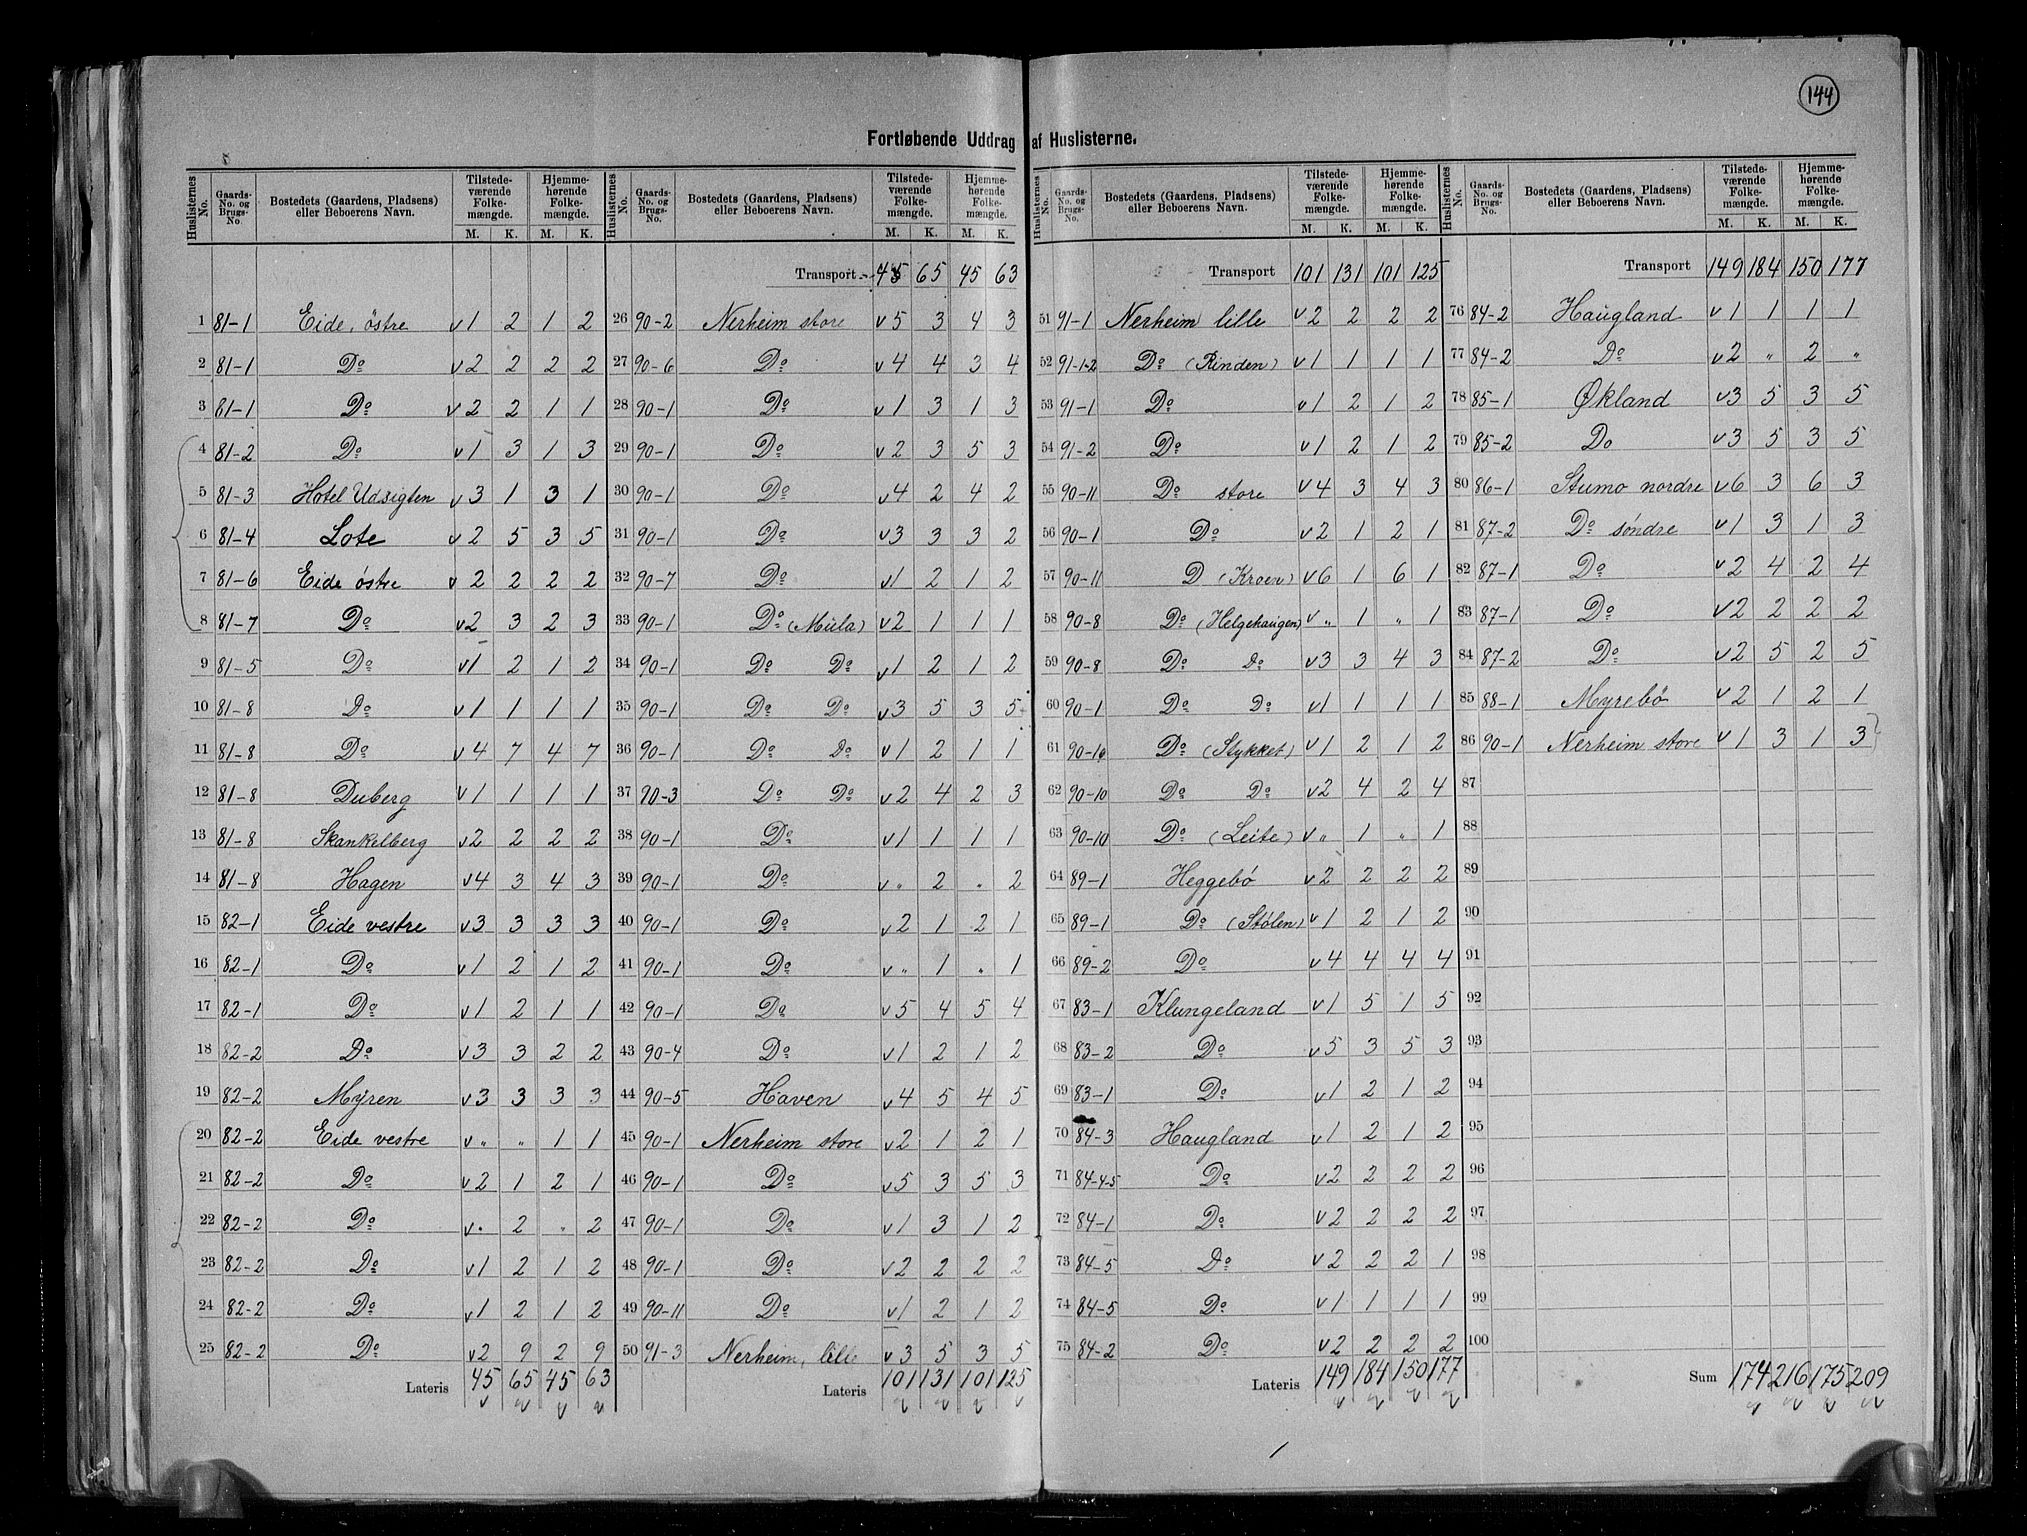 144
Fortløbende Uddrag af Huslisterne.
Huslisternes No. Gaards-No. og Brugs-No. Bostedets (Gaardens, Pladsens) eller Beboerens Navn. Tilstedeværende Folkemængde. M. K. Hjemmehørende Folkemængde. M. K.
1 81-1 Eide, östre v1 2 1 2
2 81-1 Do v2 2 2 2
3 81-1 Do v2 2 1 1
4 81-2 Do v1 3 1 3
5 81-3 Hotel Udsigten v3 1 3 1
6 81-4 Lote v2 5 3 5
7 81-6 Eide östre v2 2 2 2
8 81-7 Do v2 3 2 3
9 81-5 Do v1 2 1 2
10 81-8 Do v1 1 1 1
11 81-8 Do v4 7 4 7
12 81-8 Duberg v1 1 1 1
13 81-8 Skankelberg v2 2 2 2
14 81-8 Hagen v4 3 4 3
15 82-1 Eide vestre v3 3 3 3
16 82-1 Do v1 2 1 2
17 82-1 Do v1 2 1 1
18 82-2 Do v3 3 2 2
19 82-2 Myren v3 3 3 3
20 82-2 Eide vestre v" " 1 1
21 82-2 Do v2 1 2 1
22 82-2 Do v" 2 " 2
23 82-2 Do v1 2 1 2
24 82-2 Do v1 2 1 2
25 82-2 Do v2 9 2 9
Lateris 45 65 45 63
Huslisternes No. Gaards-No. og Brugs-No. Bostedets (Gaardens, Pladsens) eller Beboerens Navn. Tilstedeværende Folkemængde. M. K. Hjemmehørende Folkemængde. M. K.
Transport 45 65 45 63
26 90-2 Nerheim store v5 3 4 3
27 90-6 Do v4 4 3 4
28 90-1 Do v1 3 1 3
29 90-1 Do v2 3 5 3
30 90-1 Do v4 2 4 2
31 90-1 Do v3 3 3 2
32 90-7 Do v1 2 1 2
33 90-1 Do (Mula) v2 1 1 1
34 90-1 Do Do v1 2 1 2
35 90-1 Do Do v3 5 3 5
36 90-1 Do Do v1 2 1 1
37 90-3 Do Do v2 4 2 3
38 90-1 Do v1 1 1 1
39 90-1 Do v" 2 " 2
40 90-1 Do v2 1 2 1
41 90-1 Do v" 1 " 1
42 90-1 Do v5 4 5 4
43 90-4 Do v1 2 1 2
44 90-5 Haven v4 5 4 5
45 90-1 Nerheim store v2 1 2 1
46 90-1 Do v5 3 5 3
47 90-1 Do v1 3 1 2
48 90-1 Do v2 2 2 2
49 90-11 Do v1 2 1 2
50 91-3 Nerheim, lille v3 5 3 5
Lateris 101 131 101 125
Huslisternes No. Gaards-No. og Brugs-No. Bostedets (Gaardens, Pladsens) eller Beboerens Navn. Tilstedeværende Folkemængde. M. K. Hjemmehørende Folkemængde. M. K.
Transport 101 131 101 125
51 91-1 Nerheim lille v2 2 2 2
52 91-1-2 Do (Rinden) v1 1 1 1
53 91-1 Do v1 2 1 2
54 91-2 Do v1 2 1 2
55 90-11 Do store v4 3 4 3
56 90-1 Do v2 1 2 1
57 90-11 D (Kroen) v6 1 6 1
58 90-8 Do (Helgehaugen) v" 1 " 1
59 90-8 Do Do v3 3 4 3
60 90-1 Do Do v1 1 1 1
61 90-10 Do (Stykket) v1 2 1 2
62 90-10 Do Do v2 4 2 4
63 90-10 Do (Leite) v" 1 " 1
64 89-1 Heggebö v2 2 2 2
65 89-1 Do (Stölen) v1 2 1 2
66 89-2 Do v4 4 4 4
67 83-1 Klungeland v1 5 1 5
68 83-2 Do v5 3 5 3
69 83-1 Do v1 2 1 2
70 84-3 Haugland v1 2 1 2
71 84-4-5 Do v2 2 2 2
72 84-1 Do v2 2 2 2
73 84-5 Do v2 2 2 1
74 84-5 Do v1 1 1 1
75 84-2 Do v2 2 2 2
Lateris 149 184 150 177
Huslisternes No. Gaards-No. og Brugs-No. Bostedets (Gaardens, Pladsens) eller Beboerens Navn. Tilstedeværende Folkemængde. M. K. Hjemmehørende Folkemængde. M. K.
Transport 149 184 150 177
76 84-2 Haugland v1 1 1 1
77 84-2 Do v2 " 2 "
78 85-1 Økland v3 5 3 5
79 85-2 Do v3 5 3 5
80 86-1 Stumo nordre v6 3 6 3
81 87-2 Do söndre v1 3 1 3
82 87-1 Do v2 4 2 4
83 87-1 Do v2 2 2 2
84 87-2 Do v2 5 2 5
85 88-1 Myrebö v2 1 2 1
86 90-1 Nerheim store v1 3 1 3
87
88
89
90
91
92
93
94
95
96
97
98
99
100
Sum 174 216 175 209